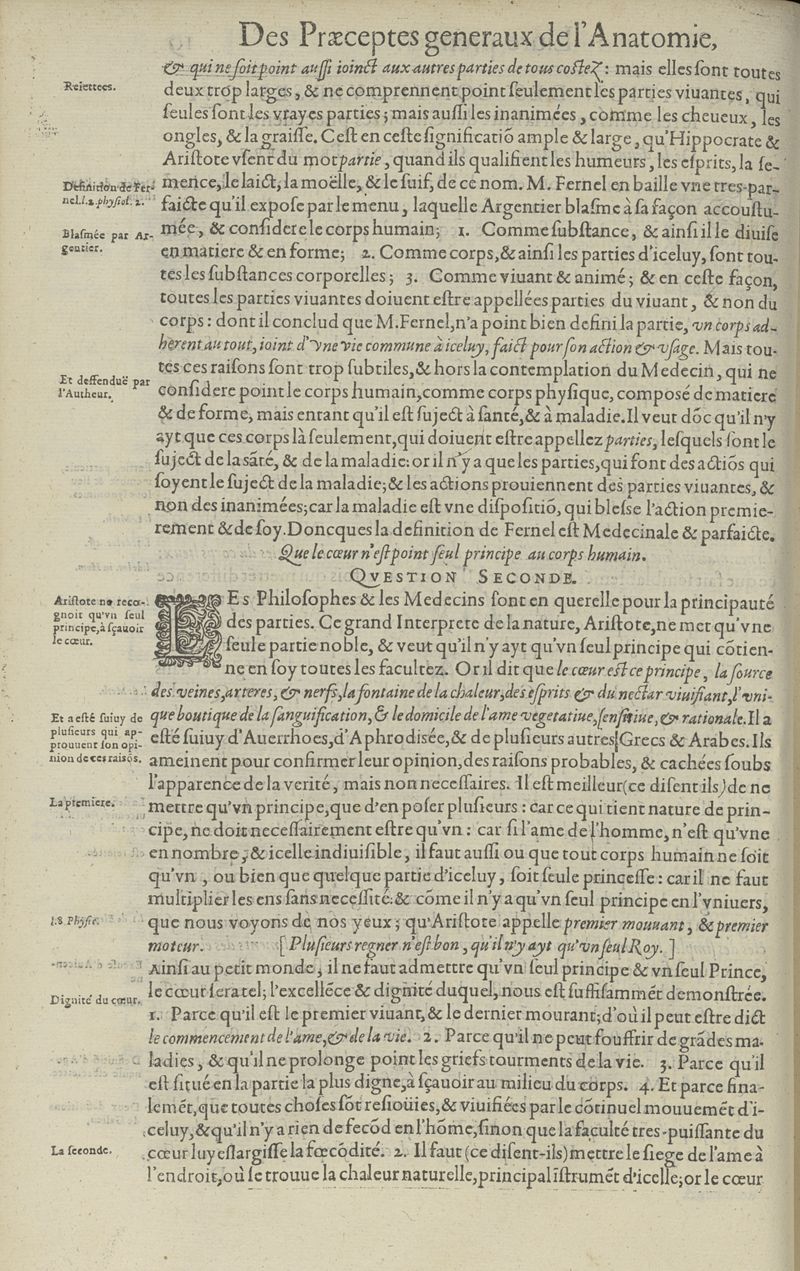 Des Præceptes generaux de l'Anatomie,
& qui ne ſoit point auſſi ioinct aux autres parties de tous coſtez : mais elles ſont toutes
Reiettees.
deux trop larges, & ne comprennent point ſeulement les parties viuantes, qui
ſeules ſont les vrayes parties ; mais auſſi les inanimées, comme les cheueux, les
ongles, & la graiſſe. Ceſt en ceſte ſignificatiõ ample & large, qu'Hippocrate &
Ariſtote vſent du mot partie, quand ils qualifient les humeurs, les eſprits, la ſe-
Definition de Fer-
nel. l. 2. phyſiol. 2.
mence, le laict, la moëlle, & le ſuif, de ce nom. M. Fernel en baille vne tres-par-
faicte qu'il expoſe par le menu, laquelle Argentier blaſme à ſa façon accouſtu-
Blaſmée par Ar-
gentier.
mée, & conſidere le corps humain ; 1. Comme ſubſtance, & ainſi il le diuiſe
en matiere & en forme ; 2. Comme corps, & ainſi les parties d'iceluy, ſont tou-
tes les ſubſtances corporelles ; 3. Comme viuant & animé ; & en ceſte façon,
toutes les parties viuantes doiuent eſtre appellées parties du viuant, & non du
corps : dont il conclud que M. Fernel, n'a point bien defini la partie, vn corps ad-
herent au tout, ioint d'vne vie commune à iceluy, faict pour ſon action & vſage. Mais tou-
tes ces raiſons ſont trop ſubtiles, & hors la contemplation du Medecin, qui ne
Et deffenduë par
l'Autheur.
conſidere point le corps humain, comme corps phyſique, compoſé de matiere
& de forme, mais entant qu'il eſt ſuject à ſanté, & à maladie. Il veut dõc qu'il n'y
ayt que ces corps là ſeulement, qui doiuent eſtre appellez parties, leſquels ſont le
ſuject de la sãté, & de la maladie : or il n'y a que les parties, qui font des actiõs qui
ſoyent le ſuject de la maladie ; & les actions prouiennent des parties viuantes, &
non des inanimées ; car la maladie eſt vne diſpoſitiõ, qui bleſse l'action premie-
rement & de ſoy. Doncques la definition de Fernel eſt Medecinale & parfaicte.
Que le cœur n'eſt point ſeul principe au corps humain.
QVESTION SECONDE.
Ariſtote ne recog-
gnoit qu'vn ſeul
principe, à ſçauoir
le cœur.
LEs Philoſophes & les Medecins ſont en querelle pour la principauté
des parties. Ce grand Interprete de la nature, Ariſtote, ne met qu'vne
ſeule partie noble, & veut qu'il n'y ayt qu'vn ſeul principe qui cõtien-
ne en ſoy toutes les facultez. Or il dit que le cœur eſt ce principe, la ſource
des veines, arteres, & nerfs, la fontaine de la chaleur, des eſprits & du nectar viuifiant, l'vni-
Et a eſté ſuiuy de
pluſieurs qui ap-
prouuent ſon opi-
nion de ces raiſõs.
que boutique de la ſanguification, & le domicile de l'ame vegetatiue, ſenſitiue, & rationale. Il a
eſté ſuiuy d'Auerrhoes, d'Aphrodisée, & de pluſieurs autres Grecs & Arabes. Ils
ameinent pour confirmer leur opinion, des raiſons probables, & cachées ſoubs
l'apparence de la verité, mais non neceſſaires. Il eſt meilleur (ce diſent ils) de ne
La premiere.
mettre qu'vn principe, que d'en poſer pluſieurs : car ce qui tient nature de prin-
cipe, ne doit neceſſairement eſtre qu'vn : car ſi l'ame de l'homme, n'eſt qu'vne
en nombre, & icelle indiuiſible, il faut auſſi ou que tout corps humain ne ſoit
qu'vn, ou bien que quelque partie d'iceluy, ſoit ſeule princeſſe : car il ne faut
multiplier les ens ſans neceſſité. & cõme il n'y a qu'vn ſeul principe en l'vniuers,
l. 8. Phyſic.
que nous voyons de nos yeux ; qu'Ariſtote appelle premier mouuant, & premier
moteur. [ Pluſieurs regner n'eſt bon, qu'il n'y ayt qu'vn ſeul Roy. ]
Ainſi au petit monde, il ne faut admettre qu'vn ſeul principe & vn ſeul Prince,
Dignité du cœur.
le cœur ſera tel ; l'excellẽce & dignité duquel, nous eſt ſuffiſammẽt demonſtrée.
1. Parce qu'il eſt le premier viuant, & le dernier mourant ; d'où il peut eſtre dict
le commencement de l'ame, & de la vie. 2. Parce qu'il ne peut ſouffrir de grãdes ma-
ladies, & qu'il ne prolonge point les griefs tourments de la vie. 3. Parce qu'il
eſt ſitué en la partie la plus digne, à ſçauoir au milieu du corps. 4. Et parce fina-
lemẽt, que toutes choſes ſõt reſioüies, & viuifiées par le cõtinuel mouuemẽt d'i-
celuy, & qu'il n'y a rien de fecõd en l'hõme, ſinon que la faculté tres-puiſſante du
La ſeconde.
cœur luy eſlargiſſe la fœcõdité. 2. Il faut (ce diſent-ils) mettre le ſiege de l'ame à
l'endroit, où ſe trouue la chaleur naturelle, principal iſtrumẽt d'icelle ; or le cœur